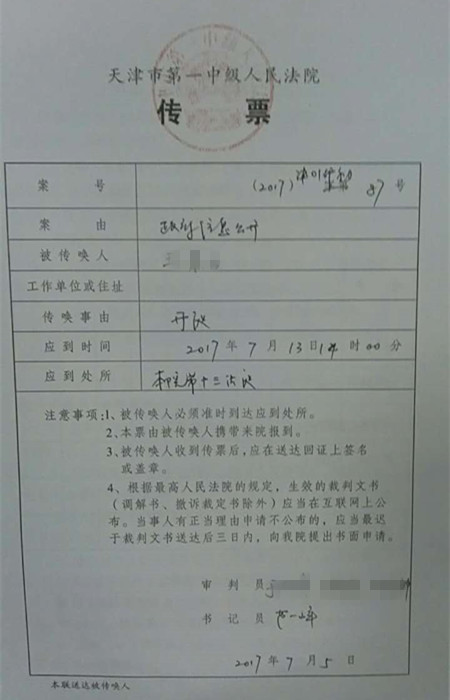 天津市第一中级人民法院
传 票
案 号 (2017)津01行初87号
案 由 政府信息公开
被传唤人
工作单位或住址
传唤事由 开庭
应到时间 2017年7月13日14时00分
应到处所 本院第十三法庭
注意事项:1、被传唤人必须准时到达应到处所。
2、本票由被传唤人携带来院报到。
3、被传唤人收到传票后,应在送达回证上签名
或盖章。
4、根据最高人民法院的规定,生效的裁判文书
(调解书、撤诉裁定书除外)应当在互联网上公
布。当事人有正当理由申请不公布的,应当最迟
于裁判文书送达后三日内,向我院提出书面申请。
审 判 员
书 记 员
2017年7月5日
本联送达被传唤人